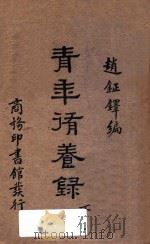 趙鉦鐸編
青年脩養錄
商務印書館發行